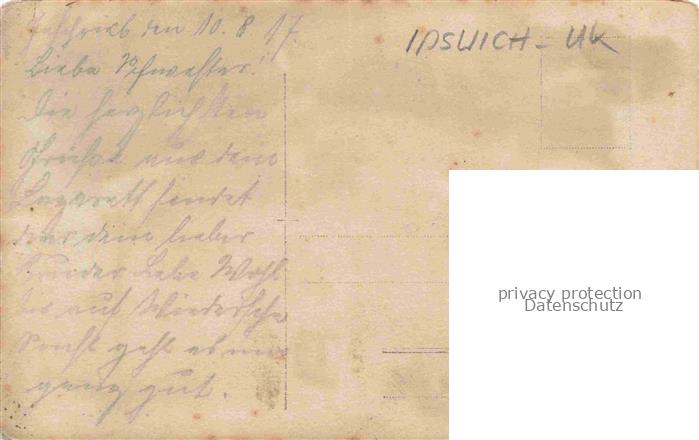 Geschrieb den 10. 8. 17.
IPSWICH - UK
Liebe Schwester!
Die herzlichsten
Grüße aus dem
Lazarett sendet
dir dein lieber
Bruder Lebe Wohl
bis auf Wiedersehn
Sonst geht es mir
ganz gut.
privacy protection
Datenschutz